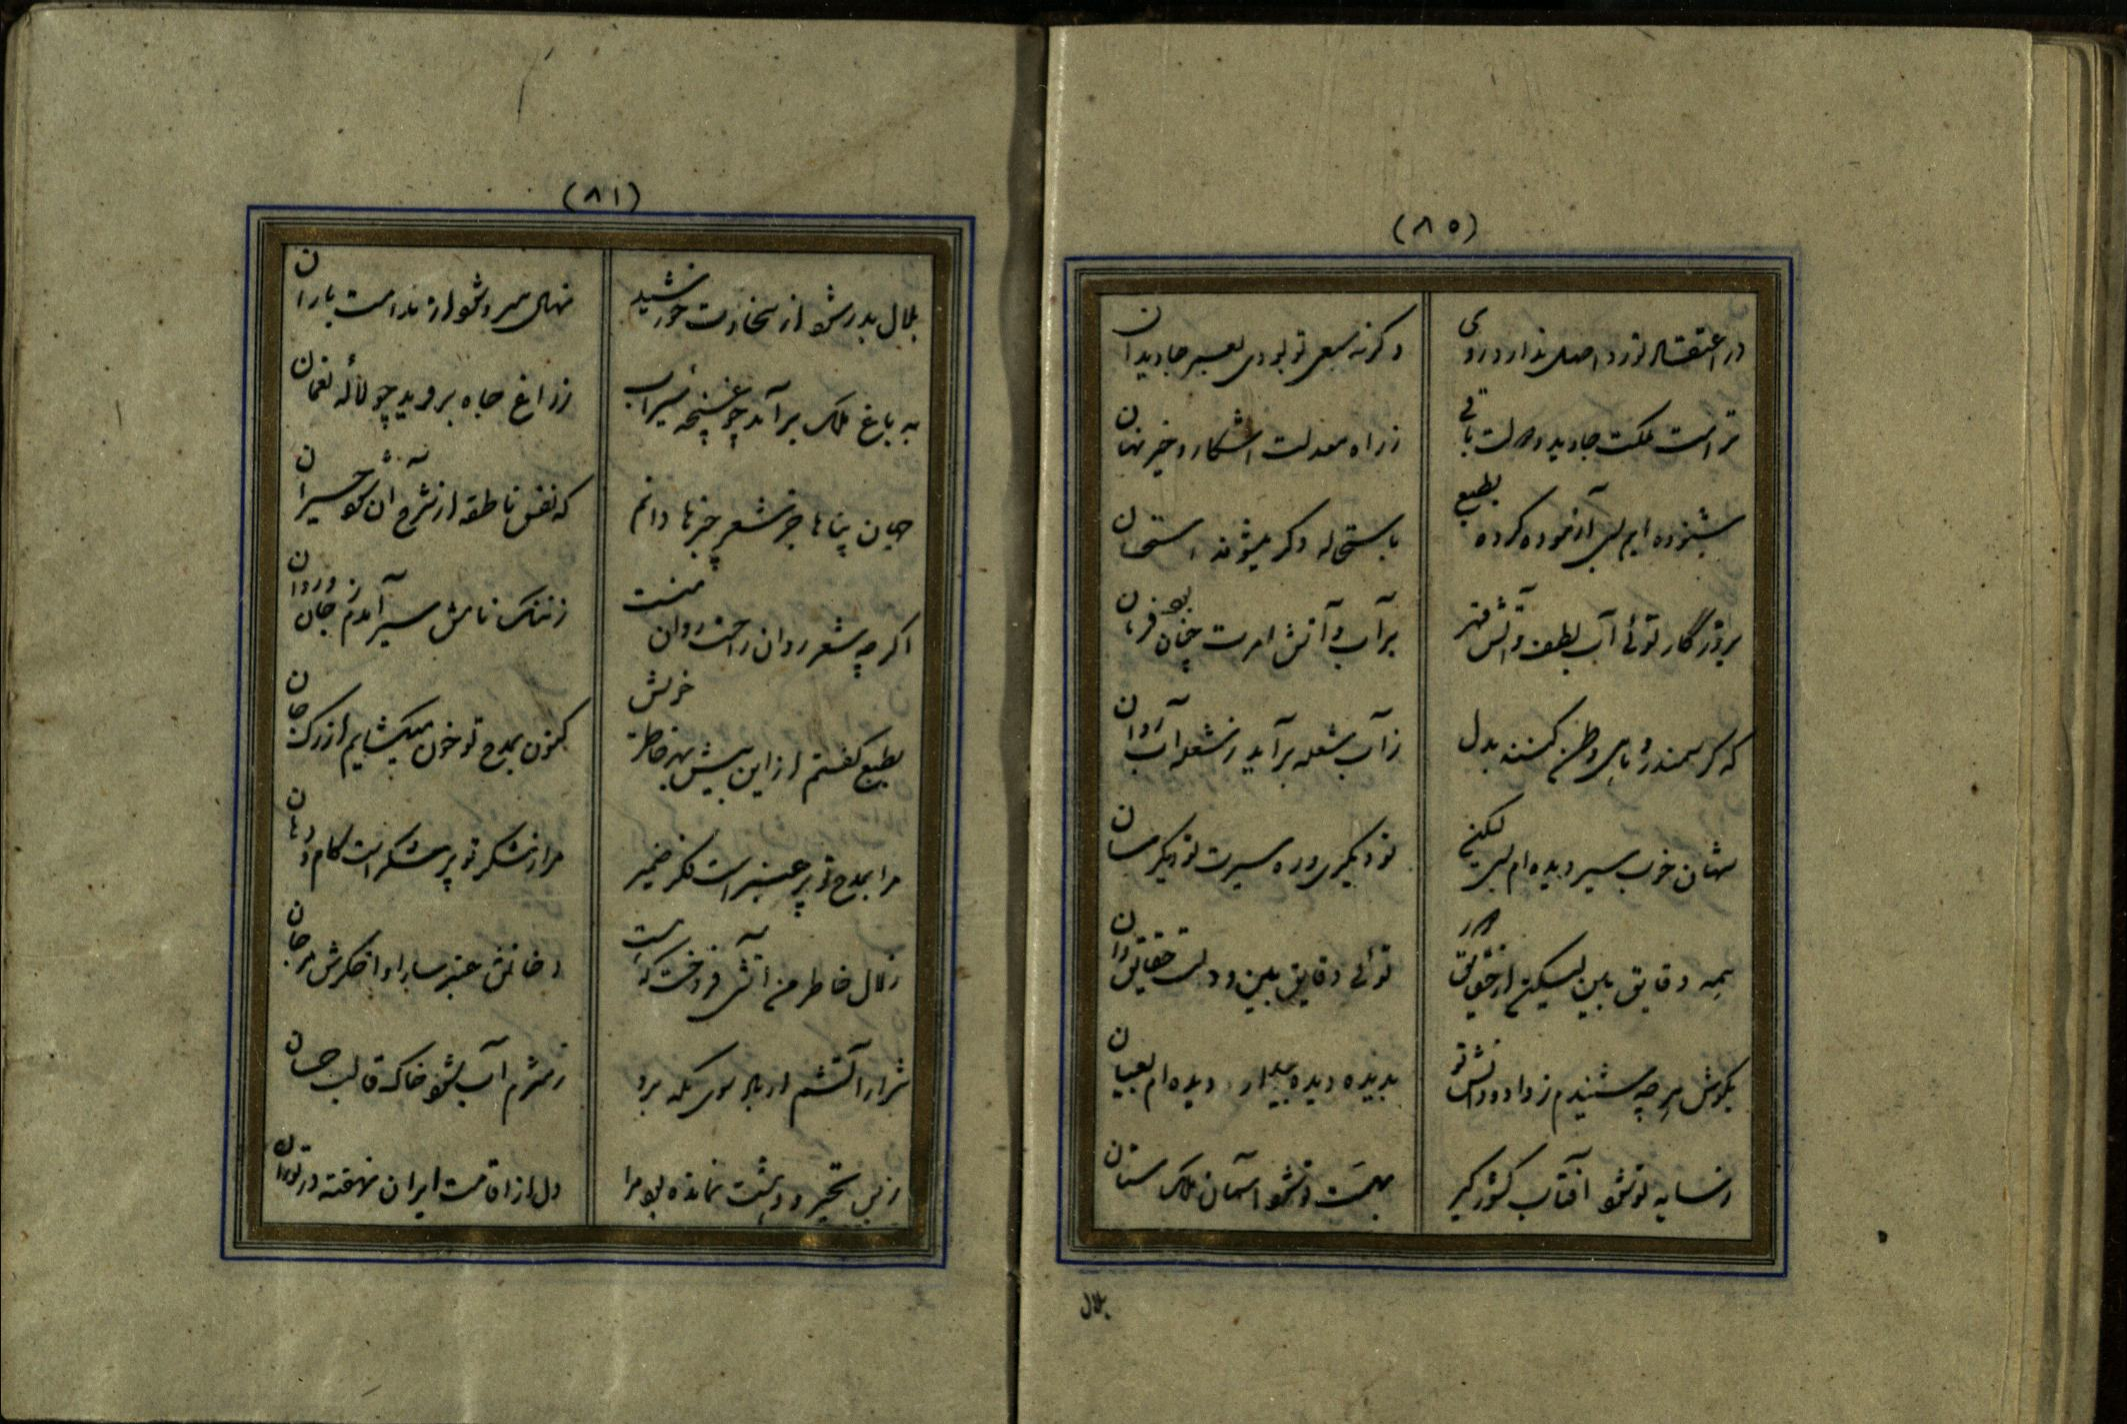 (۸۵)
وگرنه سعی تو بودی بعسیر جاویدان
تراست مملکت جاوید و دولت باقی
زراه معدلت اشکار و خیر نهان
شنوده ایم بسی آزموده کرده بطبع
باستحاله دگر میشوند استحسان
بروزگار توئی آب لطف و آتش قهر
برآب و آتش امرت چنان بود فرمان
که گر سمندر و ماهی وطن کنند بدل
زآب شعله برآید زشعله آب روان
شهان خوب سیر دیده ام بسی لیکن
تو دیگری و ره سیرت تو دیگر سان
همه دقایق بین لیکن از حقایق دور
توئی دقایق بین و دلت حقایق دان
بگوش هرچه شنیدم ز داد و دانش تو
بدیده دیده بیدار دیده ام بعیان
زسایه تو شو آفتاب کشورگیر
بهمت تو شو آسمان ملک ستان
هلال
(۸۱)
هلال بدر شو از سخاوت خورشید
نهال سرو شو از نداست باران
به باغ ملک برآید چو غنچه سیراب
زراغ جاه بروید چو لاله نعمان
جهان پناها جز شعر چیزها دانم
که نفس ناطقه از شرح آن شو حیران
اگر چه شعر روان راحت روان منست
زننگ نامش سیر آمدم زجان و روان
بطبع گفتم از این پیش بهر خاطر خویش
کنون بمدح تو خون میگشایم از رگ جان
مرا بمدح تو پر عنبر است فکر ضمیر
مرا زشکر تو پر شکر است کام و دهان
زلال خاطر من آتشی فروخت که هست
دخانش عنبر سارا و اخگرش مرجان
شرار آتشم ار باد سوی مکه برد
زشرم آب شو خاک قالب حسان
زبس تحیر و دهشت نمانده بود مرا
دل از اقامت ایران نهفته در توران